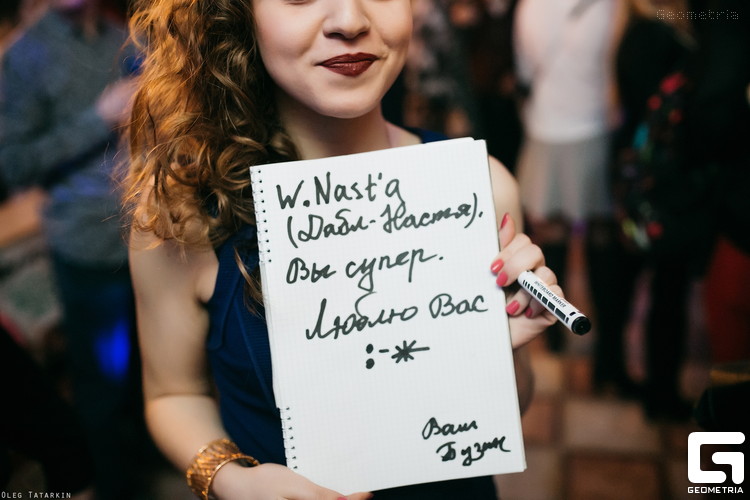 Geometria
W.Nast'a
(Дабл-Настя).
Вы супер.
Люблю Вас
:-*
Ваш
Бузин
OLEG TATARKIN
GEOMETRIA